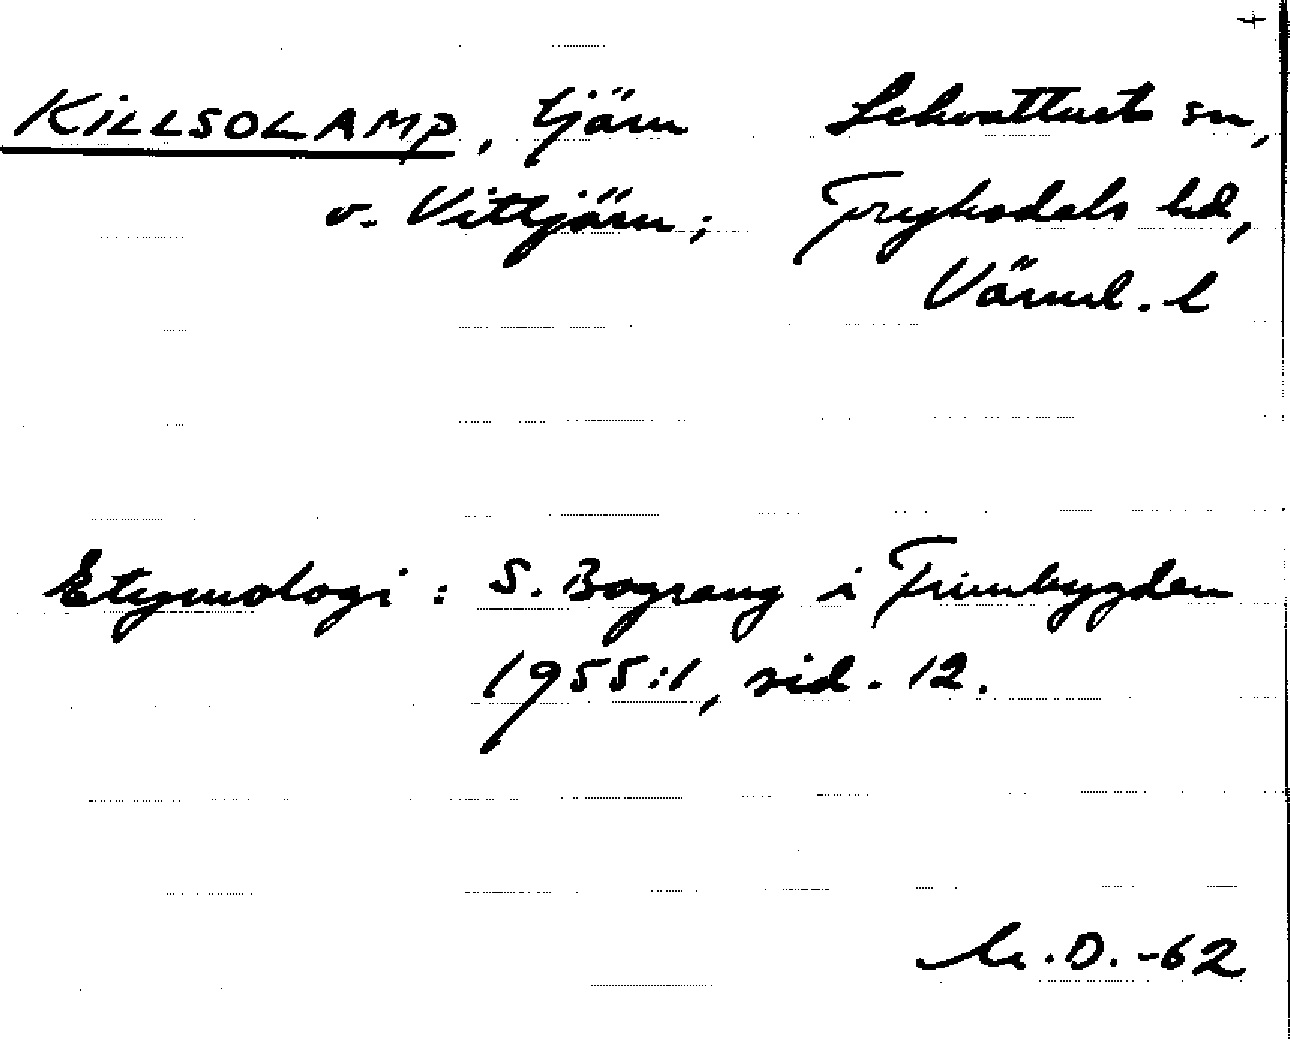 KILLSOLAMP, tjärn Lekvattnets sn,
v. Vittjärn; Fryksdals hd,
Värml. l
Etymologi: S. Bograng i Finnbygden
1955:1, sid. 12.
M.D. -62